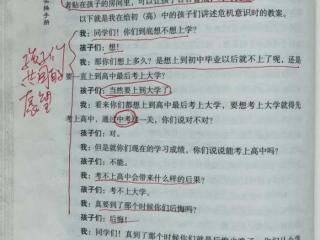 老贴在孩子的房间里，可以让孩子
以下就是我在给初（高）中的孩子们讲述危机意识时的教案。
我：同学们！你们到底想不想上学？
孩子们：想！
我：那你们想上多久？是想到初中毕业以后就不上了呢，还是
要一直上到高中最后考上大学？
孩子们：当然要上到大学了！
我：看来你们都想上到高中最后考上大学，要想考上大学就得先
考上高中，通过中考这一关，你们说对不对？
孩子们：对。
我：但是就你们现在的学习成绩，你们说能考上高中吗？
孩子们：不能。
我：考不上高中会带来什么样的后果？
孩子们：考不上大学。
我：真要到了那个时候你们后悔吗？
孩子们：后悔！
我：同学们！真到了那个时候我们后悔也晚了
孩子们
共同的
愿望